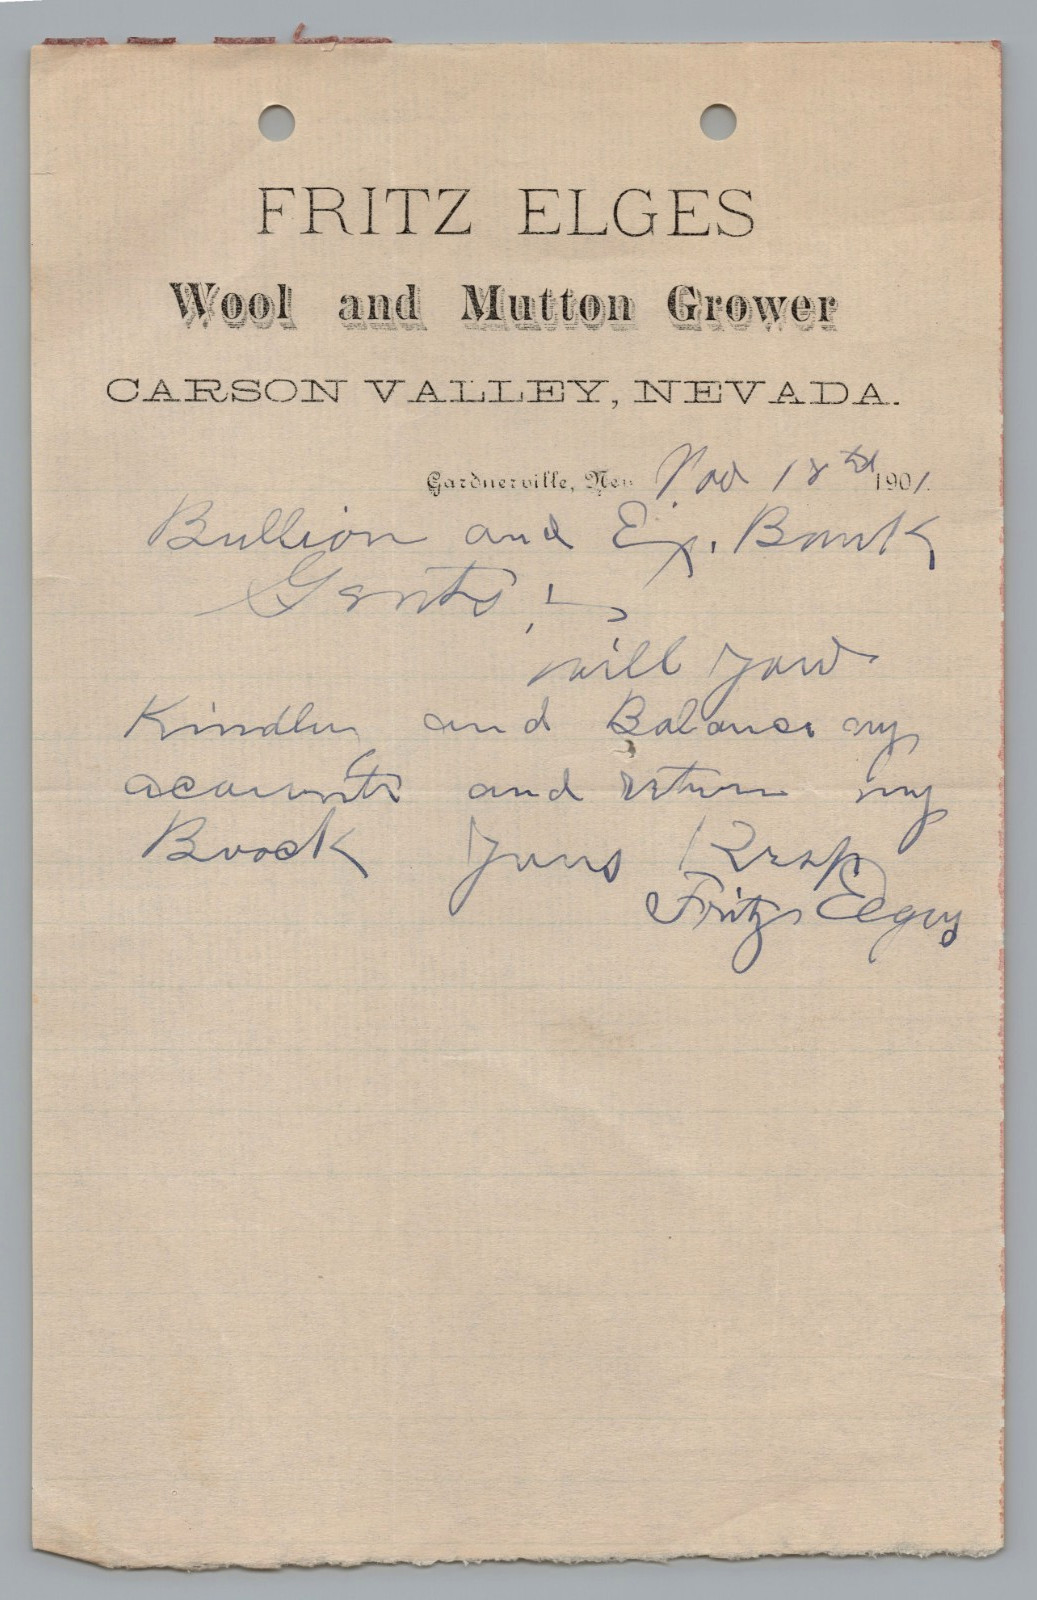 FRITZ ELGES
Wool and Mutton Grower
CARSON VALLEY, NEVADA.
Gardnerville, Nev Nov 18th 1901.
Bullion and Ex. Bank
Gents :
will you
Kindly and Balance my
acounts and return my
Boock Yours Resp
Fritz Elges